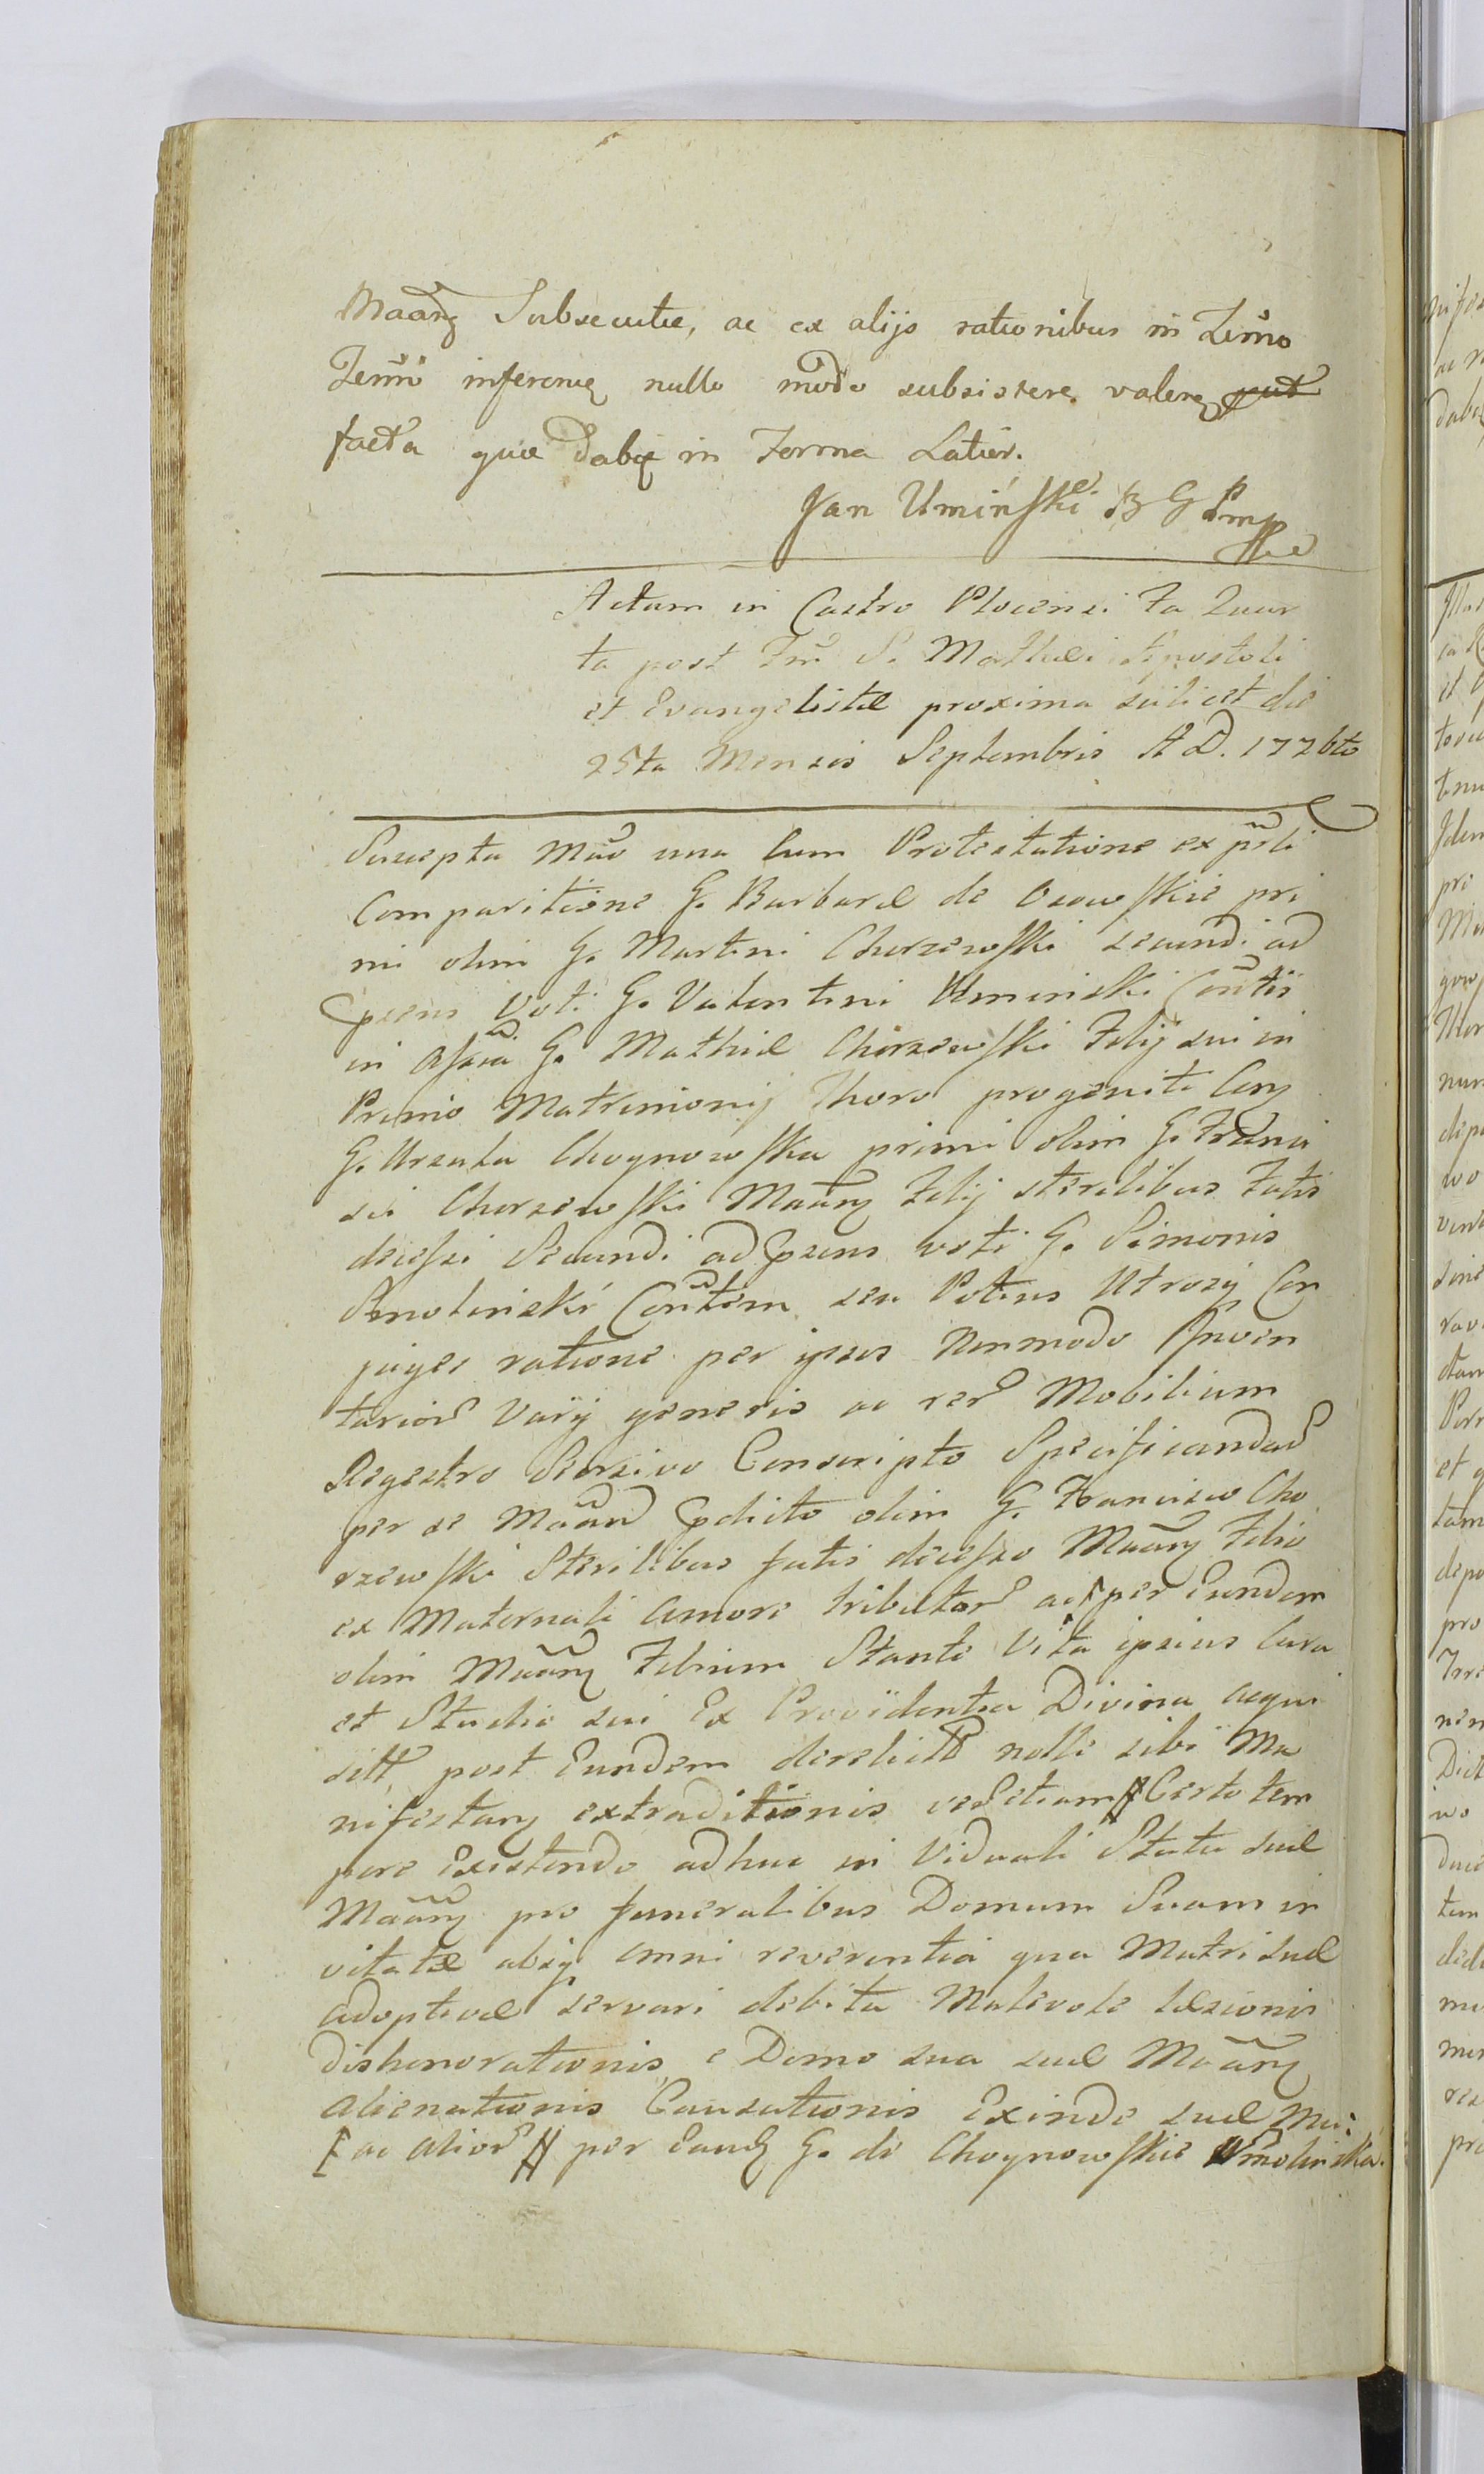 Maãnꝫ Subsecutæ, ac ex alijs rationibus in Termõ
Termi inferenꝫ nullo modo subsistere valereꝫ
facta quæ dabiꝫ in Forma Latiõr.
Jan Uminſki B G P mp
Actum in Castro Plocensi Fa Quar
ta post Fm̃ S. Mathæi Apostoli
et Evangelistæ proxima scilicet die
25ta Mensis Septembris A D. 1776to
Suscepta Mãõ una Cum Protestatione ex pñti
Comparitione G. Barbaræ de Ossowſkie pri
mi olim G. Martini Chorzewſki secundi ad
pſens Voti G. Valentini Uminski Conſtis
in Aſſña G. Mathiæ Chorzewſki Filij sui in
Primo Matrimonij Thoro progeniti Con
G. Ursula Choynowſka primi olim G. Franci
sci Chorzewſki Maãnꝫ Filij sterilibus Fatis
deceſsi Secundi ad pſens voti G. Simonis
Smolinski Conſtem seu Potius Utrosqꝫ Con
juges ratione per ipsos Nonmodo Inven
tarior Varij generis ac rer Mobilium
Regestro Seorsivo Conscripto Specificandar
per se Maãn pdicto olim G. Francisco Cho
rzewſki Sterilibus fatis deceſso Maãnꝫ Filio
ex Maternali Amore tributor ac ⁅ per Eundem
olim Maãnꝫ Filium Stante Vita ipsius Cura
et Studio sui Ex Providentia Divina Acqui
sitt, post Eundem derelictt nolle sibi Ma
nifestanꝫ extraditionis ver etiam # Certo tem
pore Existendo adhuc in Viduali Statu suæ
Maãnꝫ pro funeralibus Domum Suam in
vitatæ absqꝫ omni reverentia qua Matri suæ
Adoptivæ servari debita Malevole læsionis
dishonorationis, e Domo sua suæ Maãnꝫ
Alienationis Causationis Exinde suæ Mũ.
⁅ ac Alior # per Eandꝫ G. de Choynowſkie Smolinska.